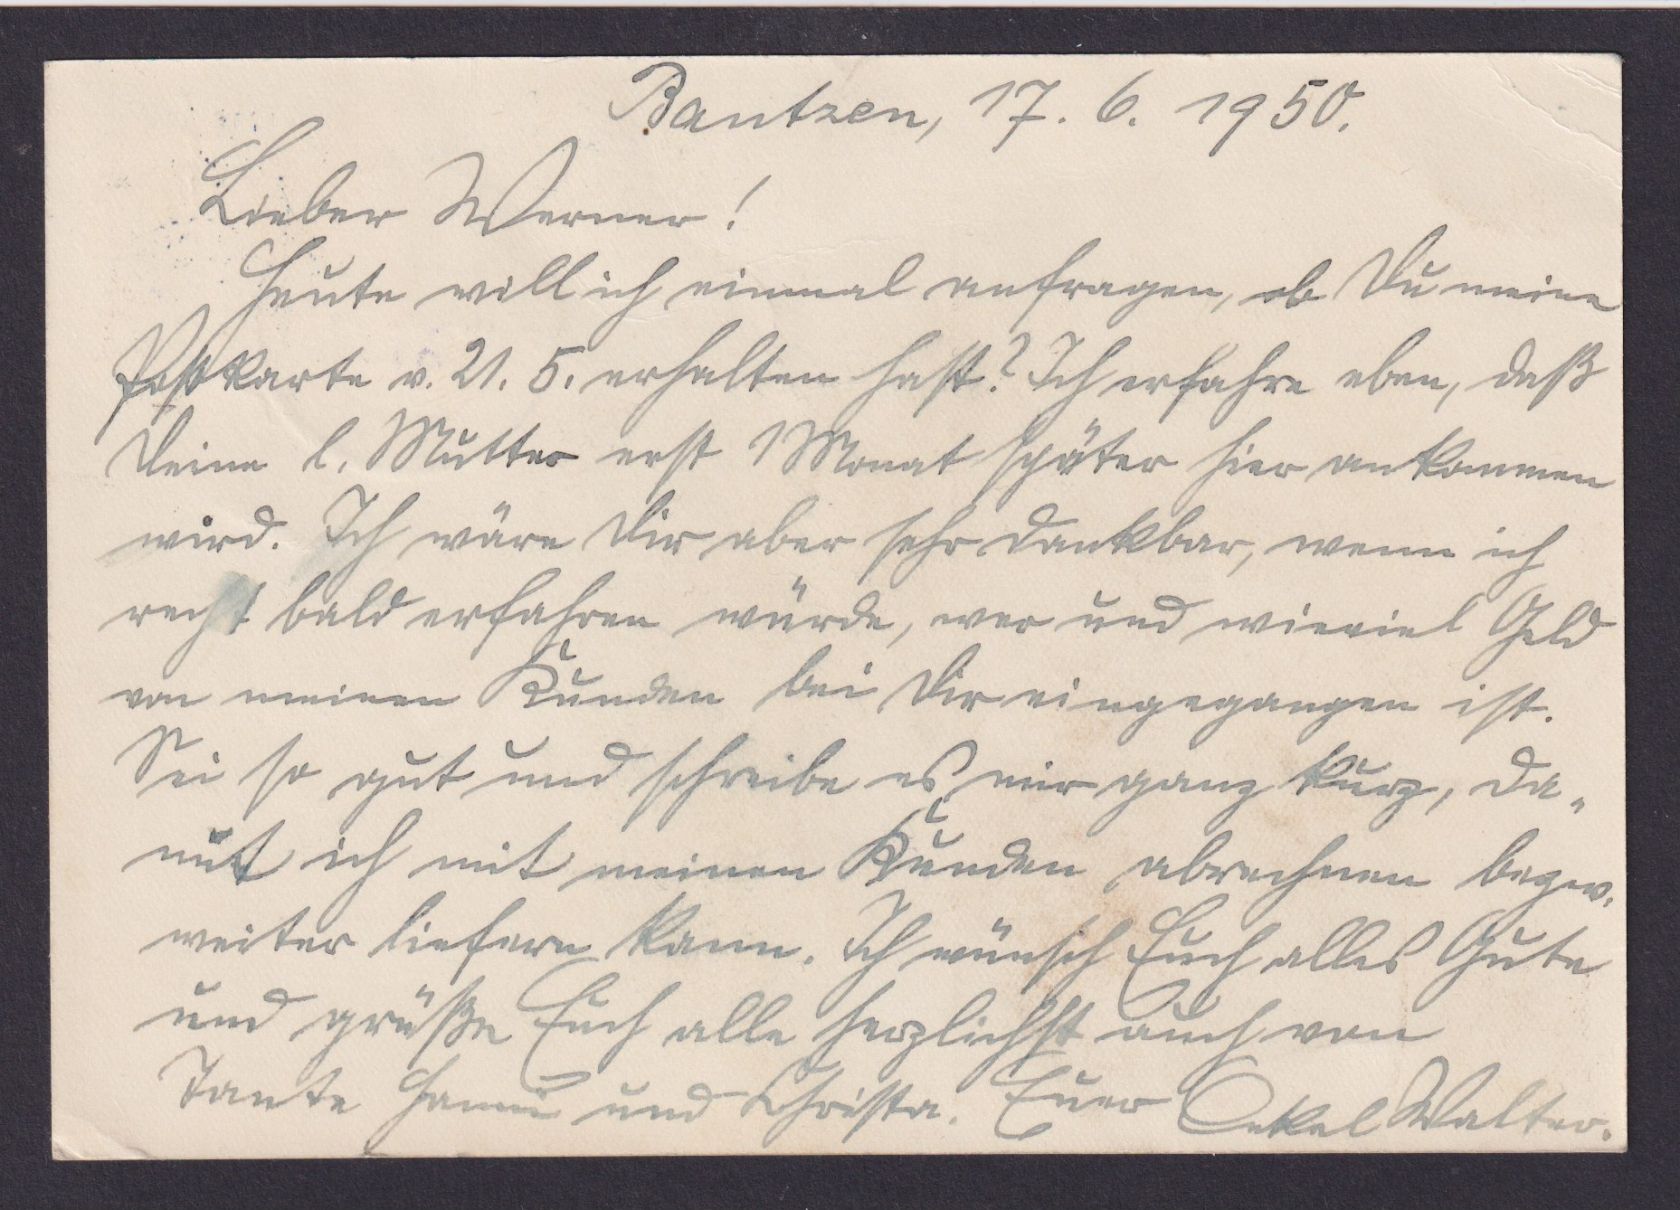 Bautzen, 17. 6. 1950.
Lieber Werner!
Heute will ich einmal anfragen, ob Du meine
Postkarte v. 21. 5. erhalten hast? Ich erfahre eben, daß
Deine l. Mutter erst 1 Monat später hier ankommen
wird. Ich wäre Dir aber sehr dankbar, wenn ich
recht bald erfahren würde, wer und wieviel Geld
von meinen Kunden bei Dir eingegangen ist.
Sei so gut und schreibe es mir ganz kurz, da-
mit ich mit meinen Kunden abrechnen bezw.
weiter liefern kann. Ich wünsch Euch alles Gute
und grüße Euch alle herzlichst auch von
Tante Hanni und Christa. Euer Onkel Walter.